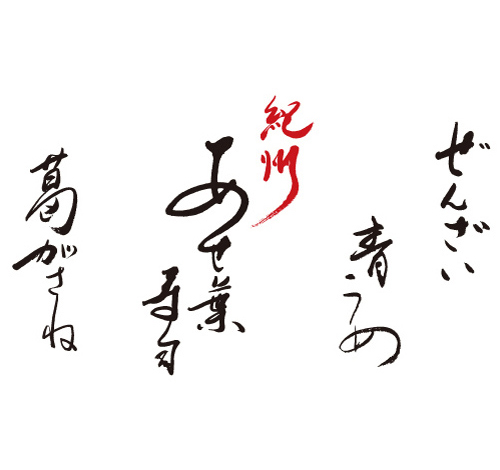 ぜんざい
青うめ
紀州
あせ葉
寿司
葛がさね